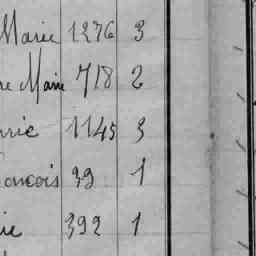 Marie 1276 3
re Marie 718 2
rie 1145 3
ançois 39 1
ie 392 1